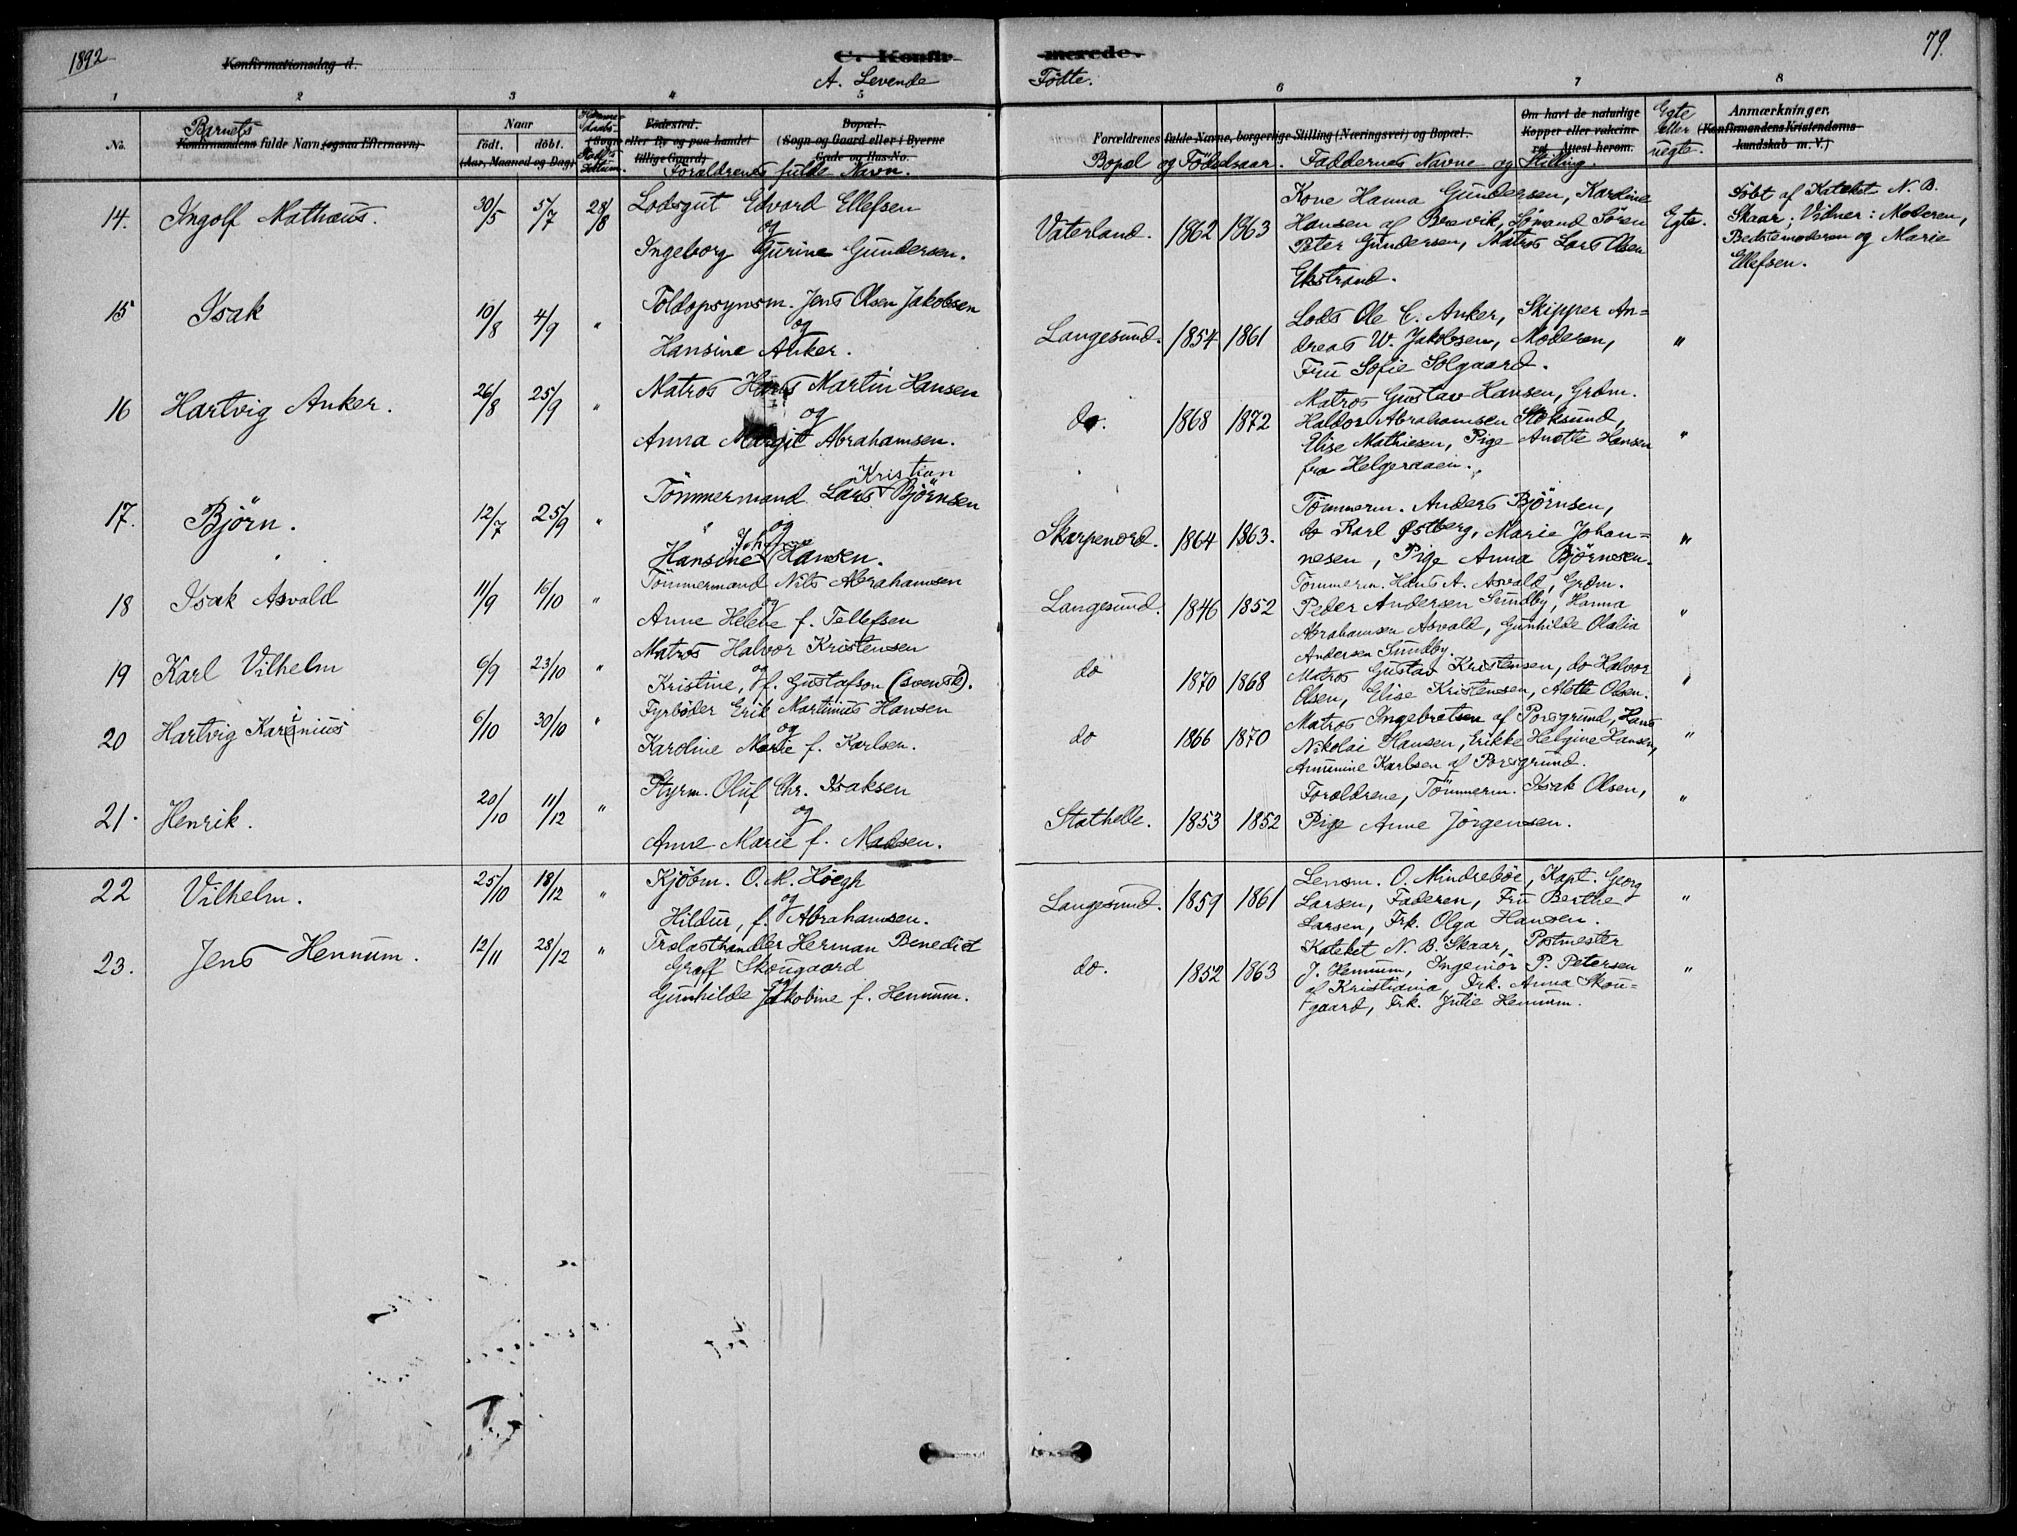 1892
Konfirmationsdag d.
C. Konfirmerede.
A. Levende Fødte.
79.
1 2 3 4 5 6 7 8
No.
Barnets
Konfirmandens fulde Navn (ogsaa Efternavn)
Naar
født. døbt.
(Aar, Maaned og Dag)
Fødested.
(Sogn eller By og paa landet
tillige Gaard)
Bopæl.
(Sogn og Gaard eller i Byerne
Gade og Hus-No.
Forældrenes fulde Navn.
Forældrenes fulde Navne, borgerlige Stilling (Næringsvei) og Bopæl.
Bopæl og Fødselsaar. Faddernes Navne og Stilling.
Om havt de naturlige
Kopper eller vakcineret.
Attest herom.
Egte
eller
uegte.
Anmærkninger.
(Konfirmandens Kristendomskundskab m. V.)
14. Ingolf Mathæus. 30/5 5/7 28/8 Lodsgut Edvard Ellefsen
og
Ingeborg Gurine Gundersen.
Vaterland. 1862 1863
Kone Hanna Gundersen, Kardine
Hansen af Brevik, Sømand Søren
Peter Gundersen, Matros Lars Olsen
Ekstrand.
Egte.
Døbt af Kateket N. B.
Skaar; Vidner: Moderen,
Bedstemoderen og Marie
Ellefsen.
15 Isak 10/8 4/9 " Toldopsynsm. Jens Olsen Jakobsen
og
Hansine Anker.
Langesund. 1854 1861
Lods Ole C. Anker, Skipper An=
dreas W. Jakobsen, Moderen,
Fru Sofie Solgaard.
"
16 Hartvig Anker. 26/8 25/9 " Matros Hans Martin Hansen
og
Anna Margit Abrahamsen.
do. 1868 1872
Matros Gustav Hansen, Grøm.
Haldor Abrahamsen Stoksund,
Elise Mathiesen, Pige Anette Hansen
fra Helgeraaen.
"
17. Bjørn. 12/7 25/9 " Tømmermand Lars Kristian Bjørnsen
og
Hansine Johanne Hansen.
Skarpenord. 1864 1863.
Tømmerm. Anders Bjørnsen,
do Karl Østberg, Marie Johan=
nesen, Pige Anna Bjørnsen.
"
18 Isak Asvald 11/9 16/10 " Tømmermand Nils Abrahamsen
og
Anne Helene f. Tellefsen
Langesund. 1846 1852
Tømmerm. Hans A. Asvald, Grøm.
Peder Andersen Sundby, Hanna
Abrahamsen Asvald, Gunhilde Olalia
Andersen Sundby.
"
19 Karl Vilhelm 6/9 23/10 " Matros Halvor Kristensen
og
Kristine, f. Gustafson (svensk).
do 1870 1868
Matros Gustav Kristensen, do Halvor
Olsen, Elise Kristensen, Alette Olsen.
"
20 Hartvig Karinius 6/10 30/10 " Fyrbøder Erik Martinius Hansen
og
Karoline Marie f. Karlsen.
do 1866 1870
Matros Ingebretsen af Porsgrund, Hans
Nikolai Hansen, Erikke Helgine Hansen,
Annine Karlsen af Porsgrund.
"
21. Henrik. 20/10 11/12 " Styrm. Oluf Chr. Isaksen
og
Anne Marie f. Madsen.
Stathelle. 1853 1852
Forældrene, Tømmerm. Isak Olsen,
Pige Anne Jørgensen.
"
22 Vilhelm. 25/10 18/12 " Kjøbm. O. M. Høegh
og
Hildur, f. Abrahamsen.
Langesund. 1859 1861
Lensm. O. Mindrebøe, Kapt. Georg
Larsen, Faderen, Fru Berthe
Larsen, Frk. Olga Hansen.
"
23. Jens Hennum. 12/11 28/12 " Trælasthandler Herman Benedict
Graff Skougaard
og
Gunhilde Jakobine f. Hennum.
do. 1852 1863
Kateket N. B. Skaar, Postmester
J. Hennum, Ingeniør P. Petersen
af Kristiania, Frk. Anna Skou=
gaard, Frk. Julie Hennum.
"